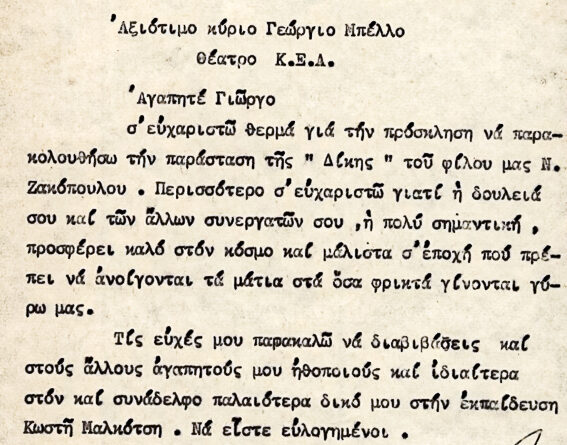 Ἀξιότιμο κύριο Γεώργιο Μπέλλο
Θέατρο Κ.Ε.Α.
Ἀγαπητέ Γιῶργο
σ'εὐχαριστῶ θερμά γιά τήν πρόσκληση νά παρα-
κολουθήσω τήν παράσταση τῆς " Δίκης " τοῦ φίλου μας Ν.
Ζακόπουλου . Περισσότερο σ'εὐχαριστῶ γιατί ἡ δουλειά
σου καί τῶν ἄλλων συνεργατῶν σου ,ἡ πολύ σημαντική ,
προσφέρει καλό στόν κόσμο καί μάλιστα σ'ἐποχή πού πρέ-
πει νά ἀνοίγονται τά μάτια στά ὅσα φρικτά γίνονται γύ-
ρω μας.
Τίς εὐχές μου παρακαλῶ νά διαβιβάσεις καί
στούς ἄλλους ἀγαπητούς μου ἠθοποιούς καί ἰδιαίτερα
στόν καί συνάδελφο παλαιότερα δικό μου στήν ἐκπαίδευση
Κωστῆ Μαλκότση . Νά εἶστε εὐλογημένοι .